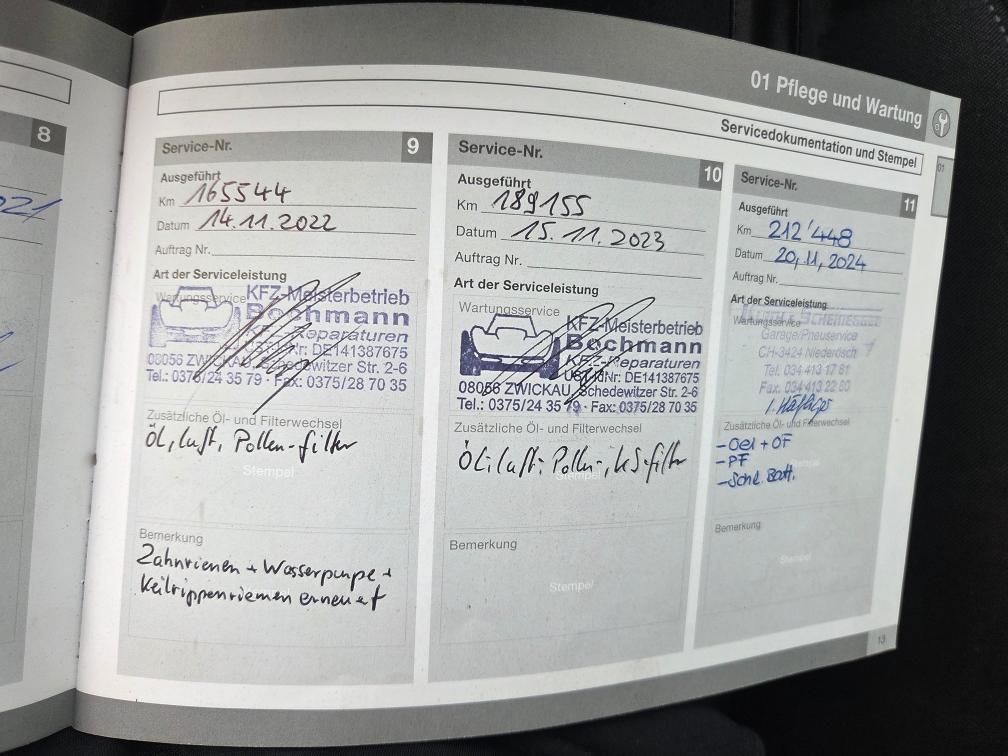 01 Pflege und Wartung
Servicedokumentation und Stempel
01
8
021
Service-Nr. 9
Ausgeführt
Km 165544
Datum 14.11.2022
Auftrag Nr.
Art der Serviceleistung
Wartungsservice
KFZ-Meisterbetrieb
Bochmann
KFZ-Reparaturen
USt-IdNr: DE141387675
08056 ZWICKAU, Schedewitzer Str. 2-6
Tel.: 0375/24 35 79 · Fax: 0375/28 70 35
Zusätzliche Öl- und Filterwechsel
Öl, Luft, Pollen-filter
Stempel
Bemerkung
Zahnriemen + Wasserpumpe +
Keilrippenriemen erneuert
Service-Nr. 10
Ausgeführt
Km 189155
Datum 15.11.2023
Auftrag Nr.
Art der Serviceleistung
Wartungsservice
KFZ-Meisterbetrieb
Bochmann
KFZ-Reparaturen
USt-IdNr: DE141387675
08056 ZWICKAU, Schedewitzer Str. 2-6
Tel.: 0375/24 35 79 · Fax: 0375/28 70 35
Zusätzliche Öl- und Filterwechsel
Öl; Luft-; Pollen-, KS-filter
Stempel
Bemerkung
Stempel
Service-Nr. 11
Ausgeführt
Km 212'448
Datum 20,11,2024
Auftrag Nr.
Art der Serviceleistung
Wartungsservice
Garage/Pneuservice
CH-3424 Niederösch
Tel. 034 413 17 81
Fax. 034 413 22 80
Zusätzliche Öl- und Filterwechsel
-Oel + OF
-PF
-Schl. Batt.
Bemerkung
Stempel
13